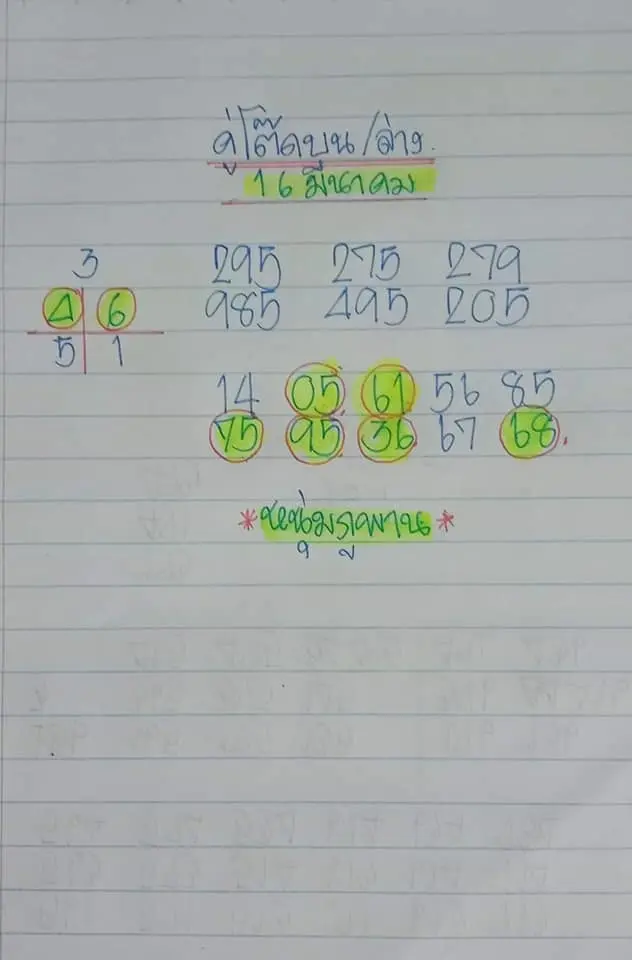 คู่โต๊ดบน/ล่าง.
16 มีนาคม
3
4 6
5 1
295 275 279
985 495 205
14 05 61 56 85
75 95 36 67 68.
*หนุ่มภูพาน*